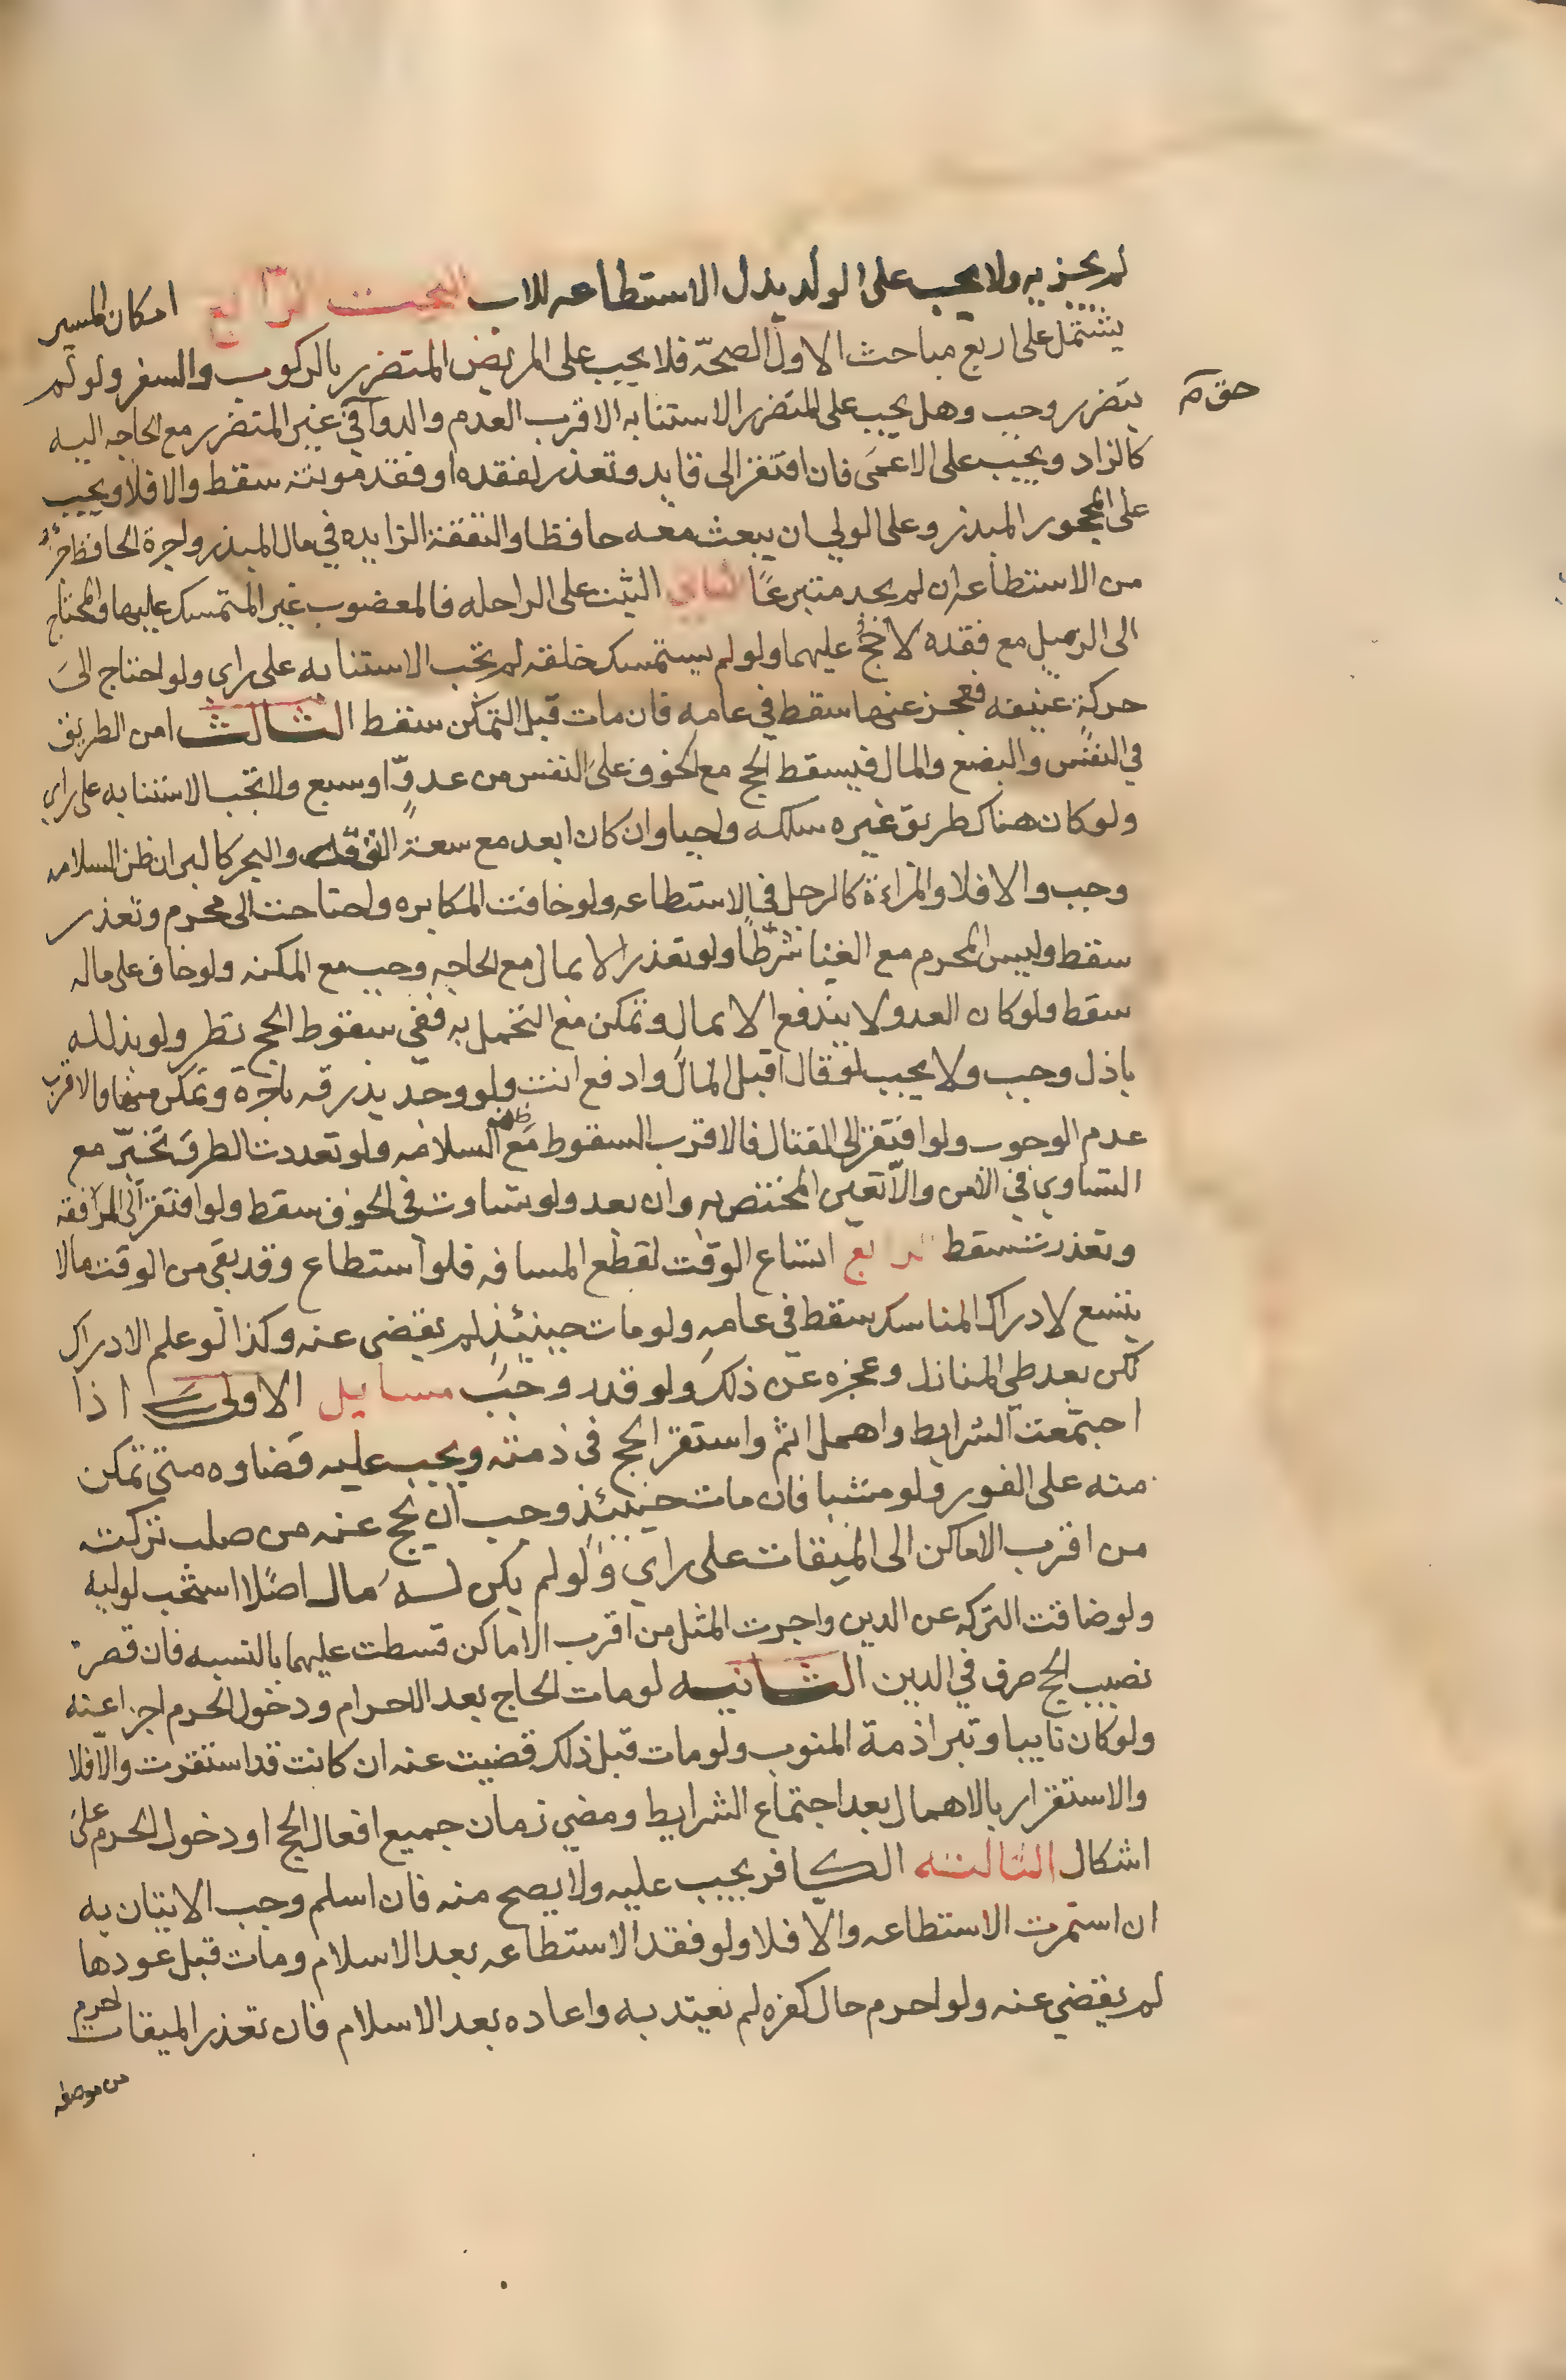 لم يجز به ولا يجب على الولد بذل الاستطاعه للاب البحث الرابع امكان المسير
يشتمل على اربع مباحث الاول الصحّه فلا يجب على المريض المتضرر بالركوب والسفر ولو لم
يتضرر وجب وهل يجب على المتضرر الاستنابه الاقرب العدم والدوآ في غير المتضرر مع الحاجه اليه
كالزاد ويجب على الاعمى فان افتقر الى قايد وتعذر لفقده او فقد مونته سقط والا فلا ويجب
على المحجور المبذر وعلى الولي ان يبعث معه حافظا والنفقة الزايده في مال المبذر واجرة الحافظ جزء
من الاستطاعه ان لم يجد متبرعًا الثاني التثبت على الراحله فالمعضوب غير المتمسك عليها والمحتاج
الى الزميل مع فقده لا حج عليهما ولو لم يستمسك خلقه لم تجب الاستنابه على راي ولو احتاج الى
حركة عنيفه فعجز عنها سقط في عامه فان مات قبل التمكن سقط الثالث امن الطريق
في النفس والبضع والمال فيسقط الحج مع الخوف على النفس من عدوّ او سبع ولا تجب الاستنابه على راي
ولو كان هناك طريق غيره سلكه واجبا وان كان ابعد مع سعة النفقه والبحر كالبر ان ظن السلامه
وجب والا فلا والمراءة كالرجل في الاستطاعه ولو خافت المكابره واحتاجت الى محرم وتعذر
سقط وليس المحرم مع الغنا شرطًا ولو تعذر الا بمال مع الحاجه وجب مع المكنه ولو خاف على ماله
سقط ولو كان العدو لا يندفع الا بمال وتمكن من التحمل به ففي سقوط الحج نظر ولو بذل له
باذل وجب ولا يجب لو قال اقبل المال وادفع انت ولو وجد بذرقه باجرة وتمكن منها فالاقرب
عدم الوجوب ولو افتقر الى القتال فالاقرب السقوط مع ظن السلامه ولو تعددت الطرق تخيّر مع
التساوي في الامن والّا تعين المختص به وان بعد ولو تساوت في الخوف سقط ولو افتقر الى المرافقه
وتعذرت سقط الرابع اتساع الوقت لقطع المسافه فلو استطاع وقد بقي من الوقت مالا
يتسع لادراك المناسك سقط في عامه ولو مات حينئذ لم يقضى عنه وكذا لو علم الادراك
لكن بعد طي المنازل وعجزه عن ذلك ولو قدر وجب مسايل الاولى اذا
اجتمعت الشرايط واهمل اثم واستقر الحج في ذمته ويجب عليه قضاوه متى تمكن
منه على الفور ولو مشيا فان مات حينئذ وجب ان يحج عنه من صلب تركته
من اقرب الاماكن الى الميقات على راي ولو لم يكن له مال اصلا استحب لوليه
ولو ضاقت التركه عن الدين واجرت المثل من اقرب الاماكن قسطت عليهما بالنسبه فان قصر
نصيب الحج صرف في الدين الثانيه لو مات الحاج بعد الاحرام ودخول الحرم اجزا عنه
ولو كان نايبا وتبرا ذمة المنوب ولو مات قبل ذلك قضيت عنه ان كانت قد استقرت والّا فلا
والاستقرار بالاهمال بعد اجتماع الشرايط ومضي زمان جميع افعال الحج او دخول الحرم على
اشكال الثالثه الكافر يجب عليه ولا يصح منه فان اسلم وجب الاتيان به
ان استمرت الاستطاعه والا فلا ولو فقد الاستطاعه بعد الاسلام ومات قبل عودها
لم يقضي عنه ولو احرم حال كفره لم يعتد به واعاده بعد الاسلام فان تعذر الميقات احرم
من موضعه